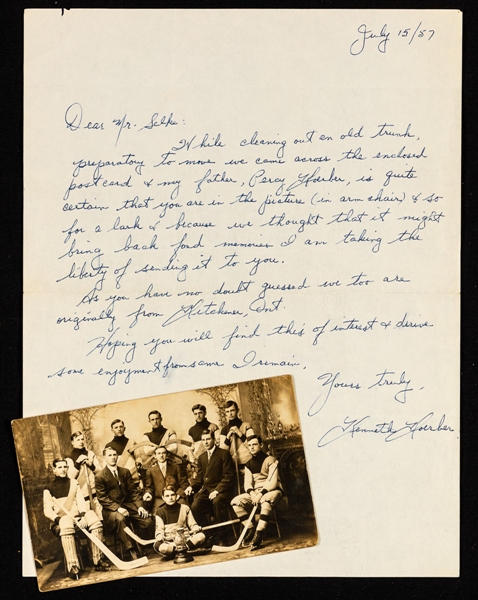 July 15/57
Dear Mr. Selke:
While cleaning out an old trunk,
preparatory to move we came across the enclosed
postcard & my father, Percy Hoerber, is quite
certain that you are in the picture (in arm chair) & so
for a lark & because we thought that it might
bring back fond memories I am taking the
liberty of sending it to you.
As you have no doubt guessed we too are
originally from Kitchener, Ont.
Hoping you will find this of interest & derive
some enjoyment from same I remain,
Yours truly,
Kenneth Hoerber